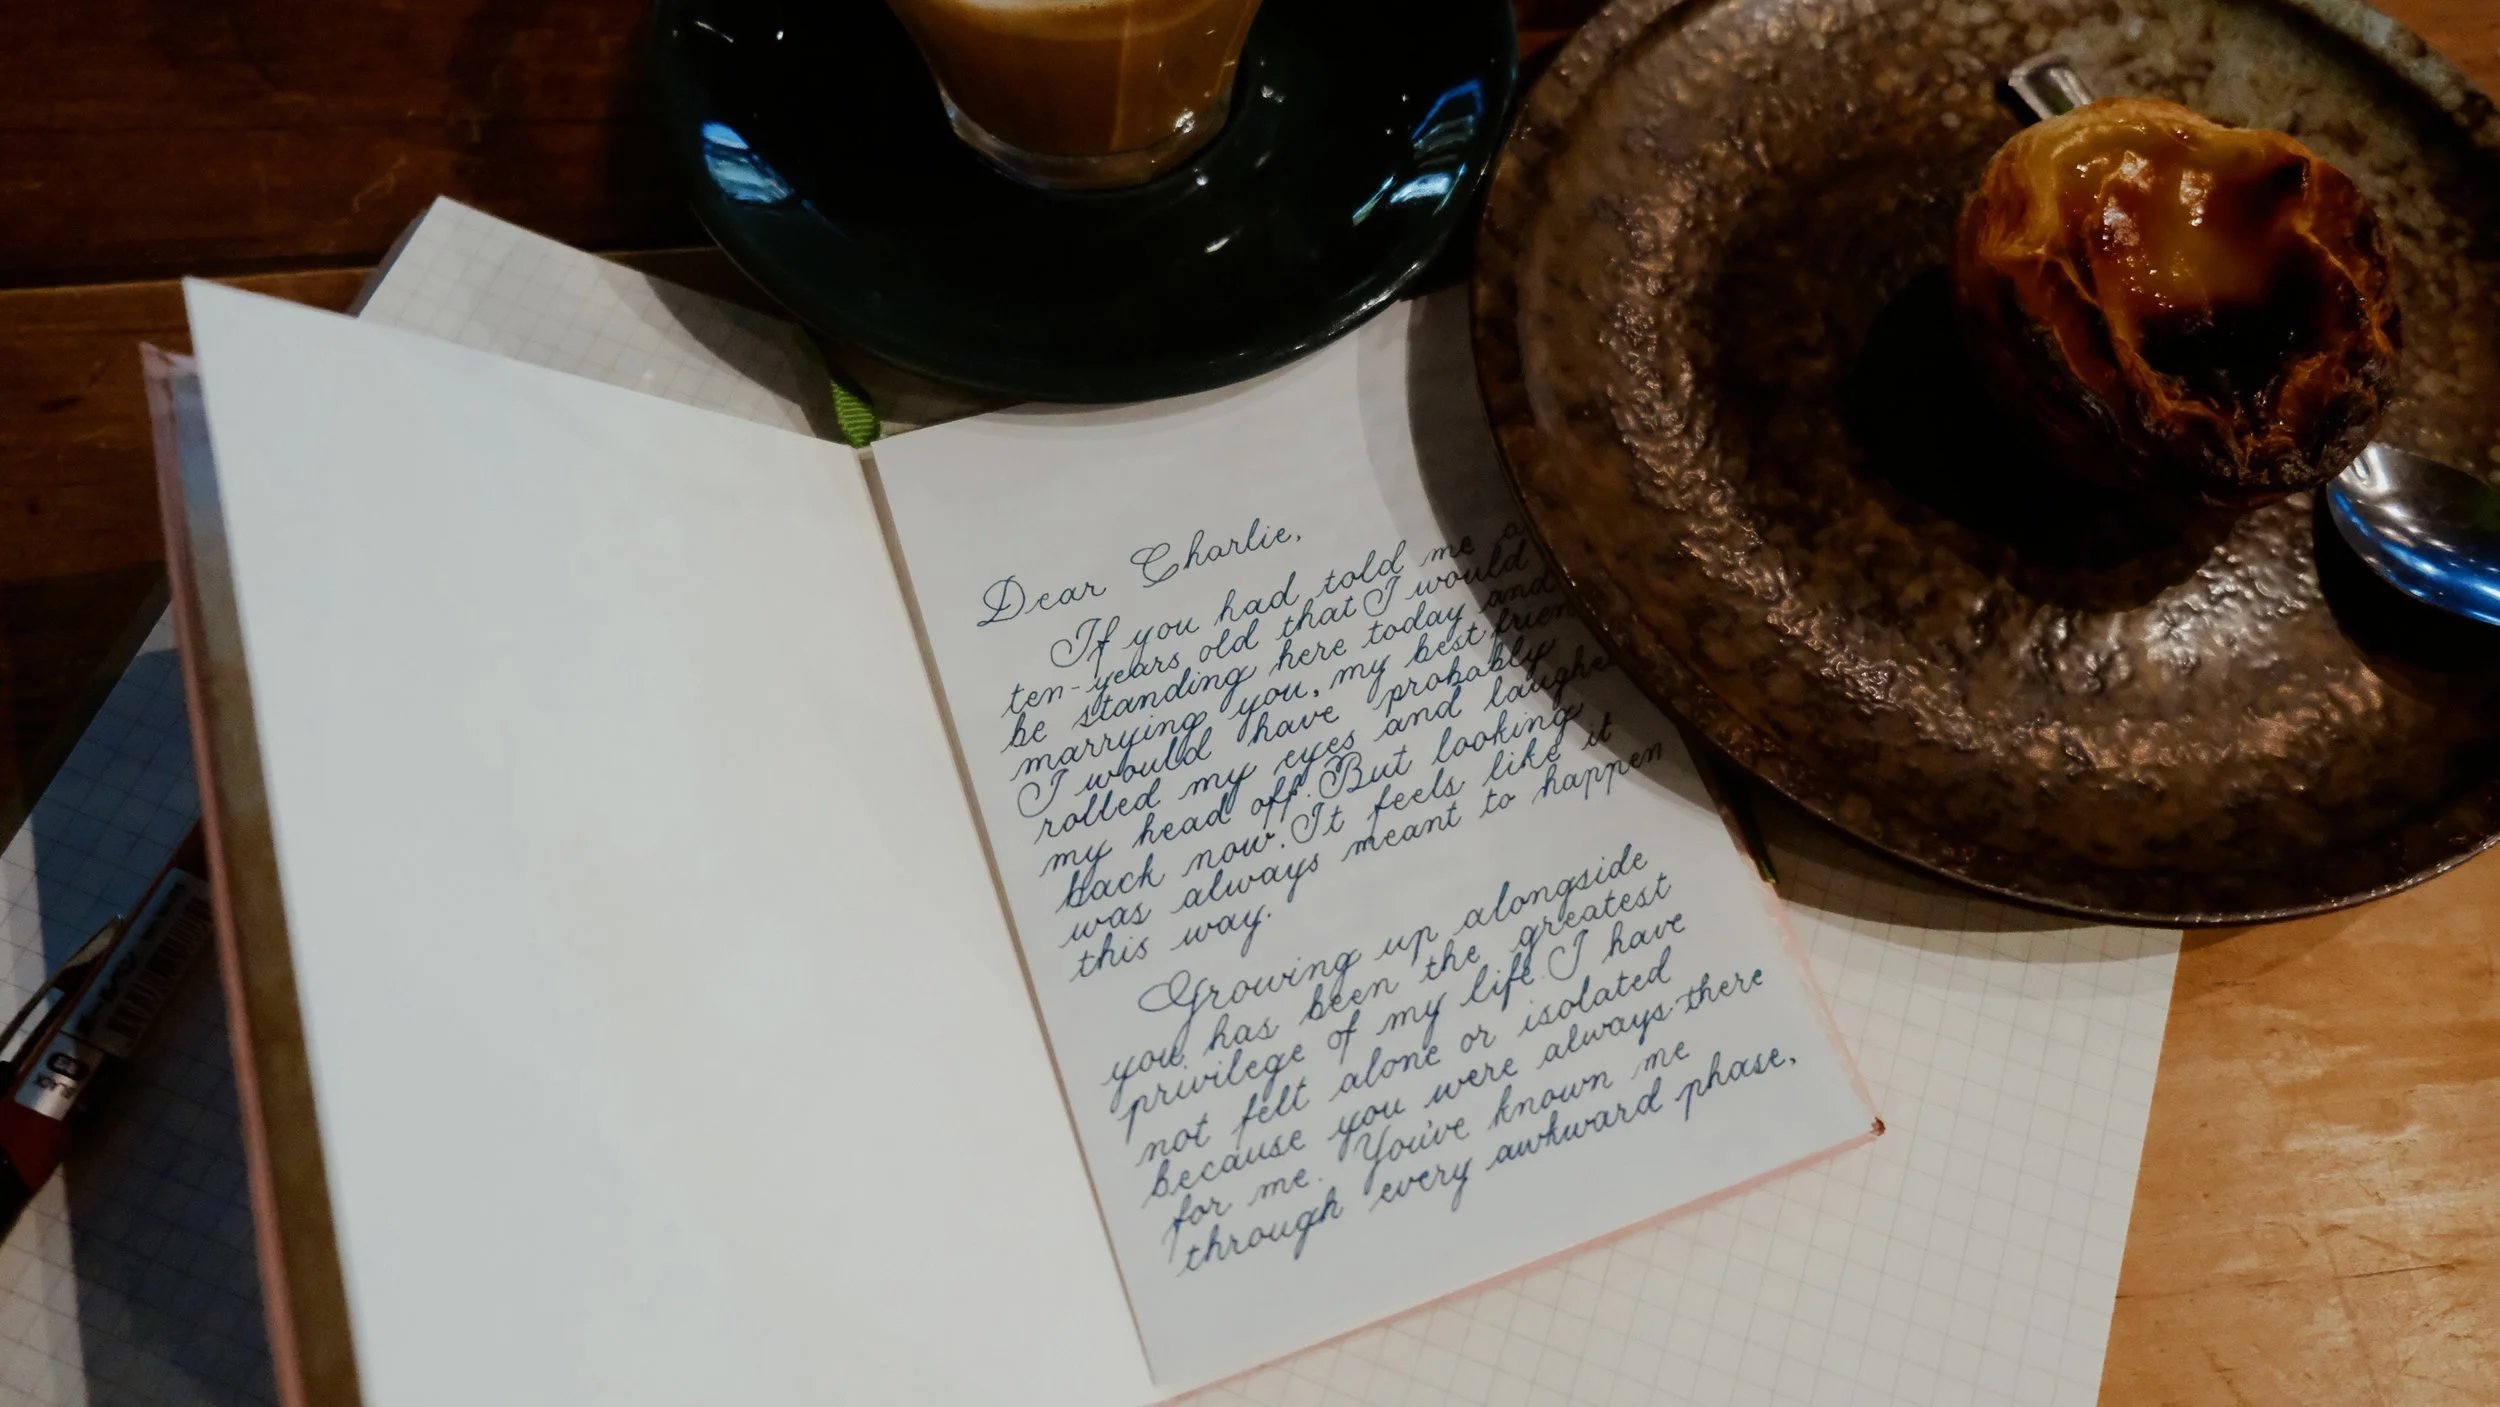 Dear Charlie,
If you had told me a
ten-years old that I would
be standing here today and
marrying you, my best frien
I would have probably
rolled my eyes and laughe
my head off. But looking
back now. It feels like it
was always meant to happen
this way.
Growing up alongside
you has been the greatest
privilege of my life. I have
not felt alone or isolated
because you were always there
for me. You've known me
through every awkward phase,
0.5